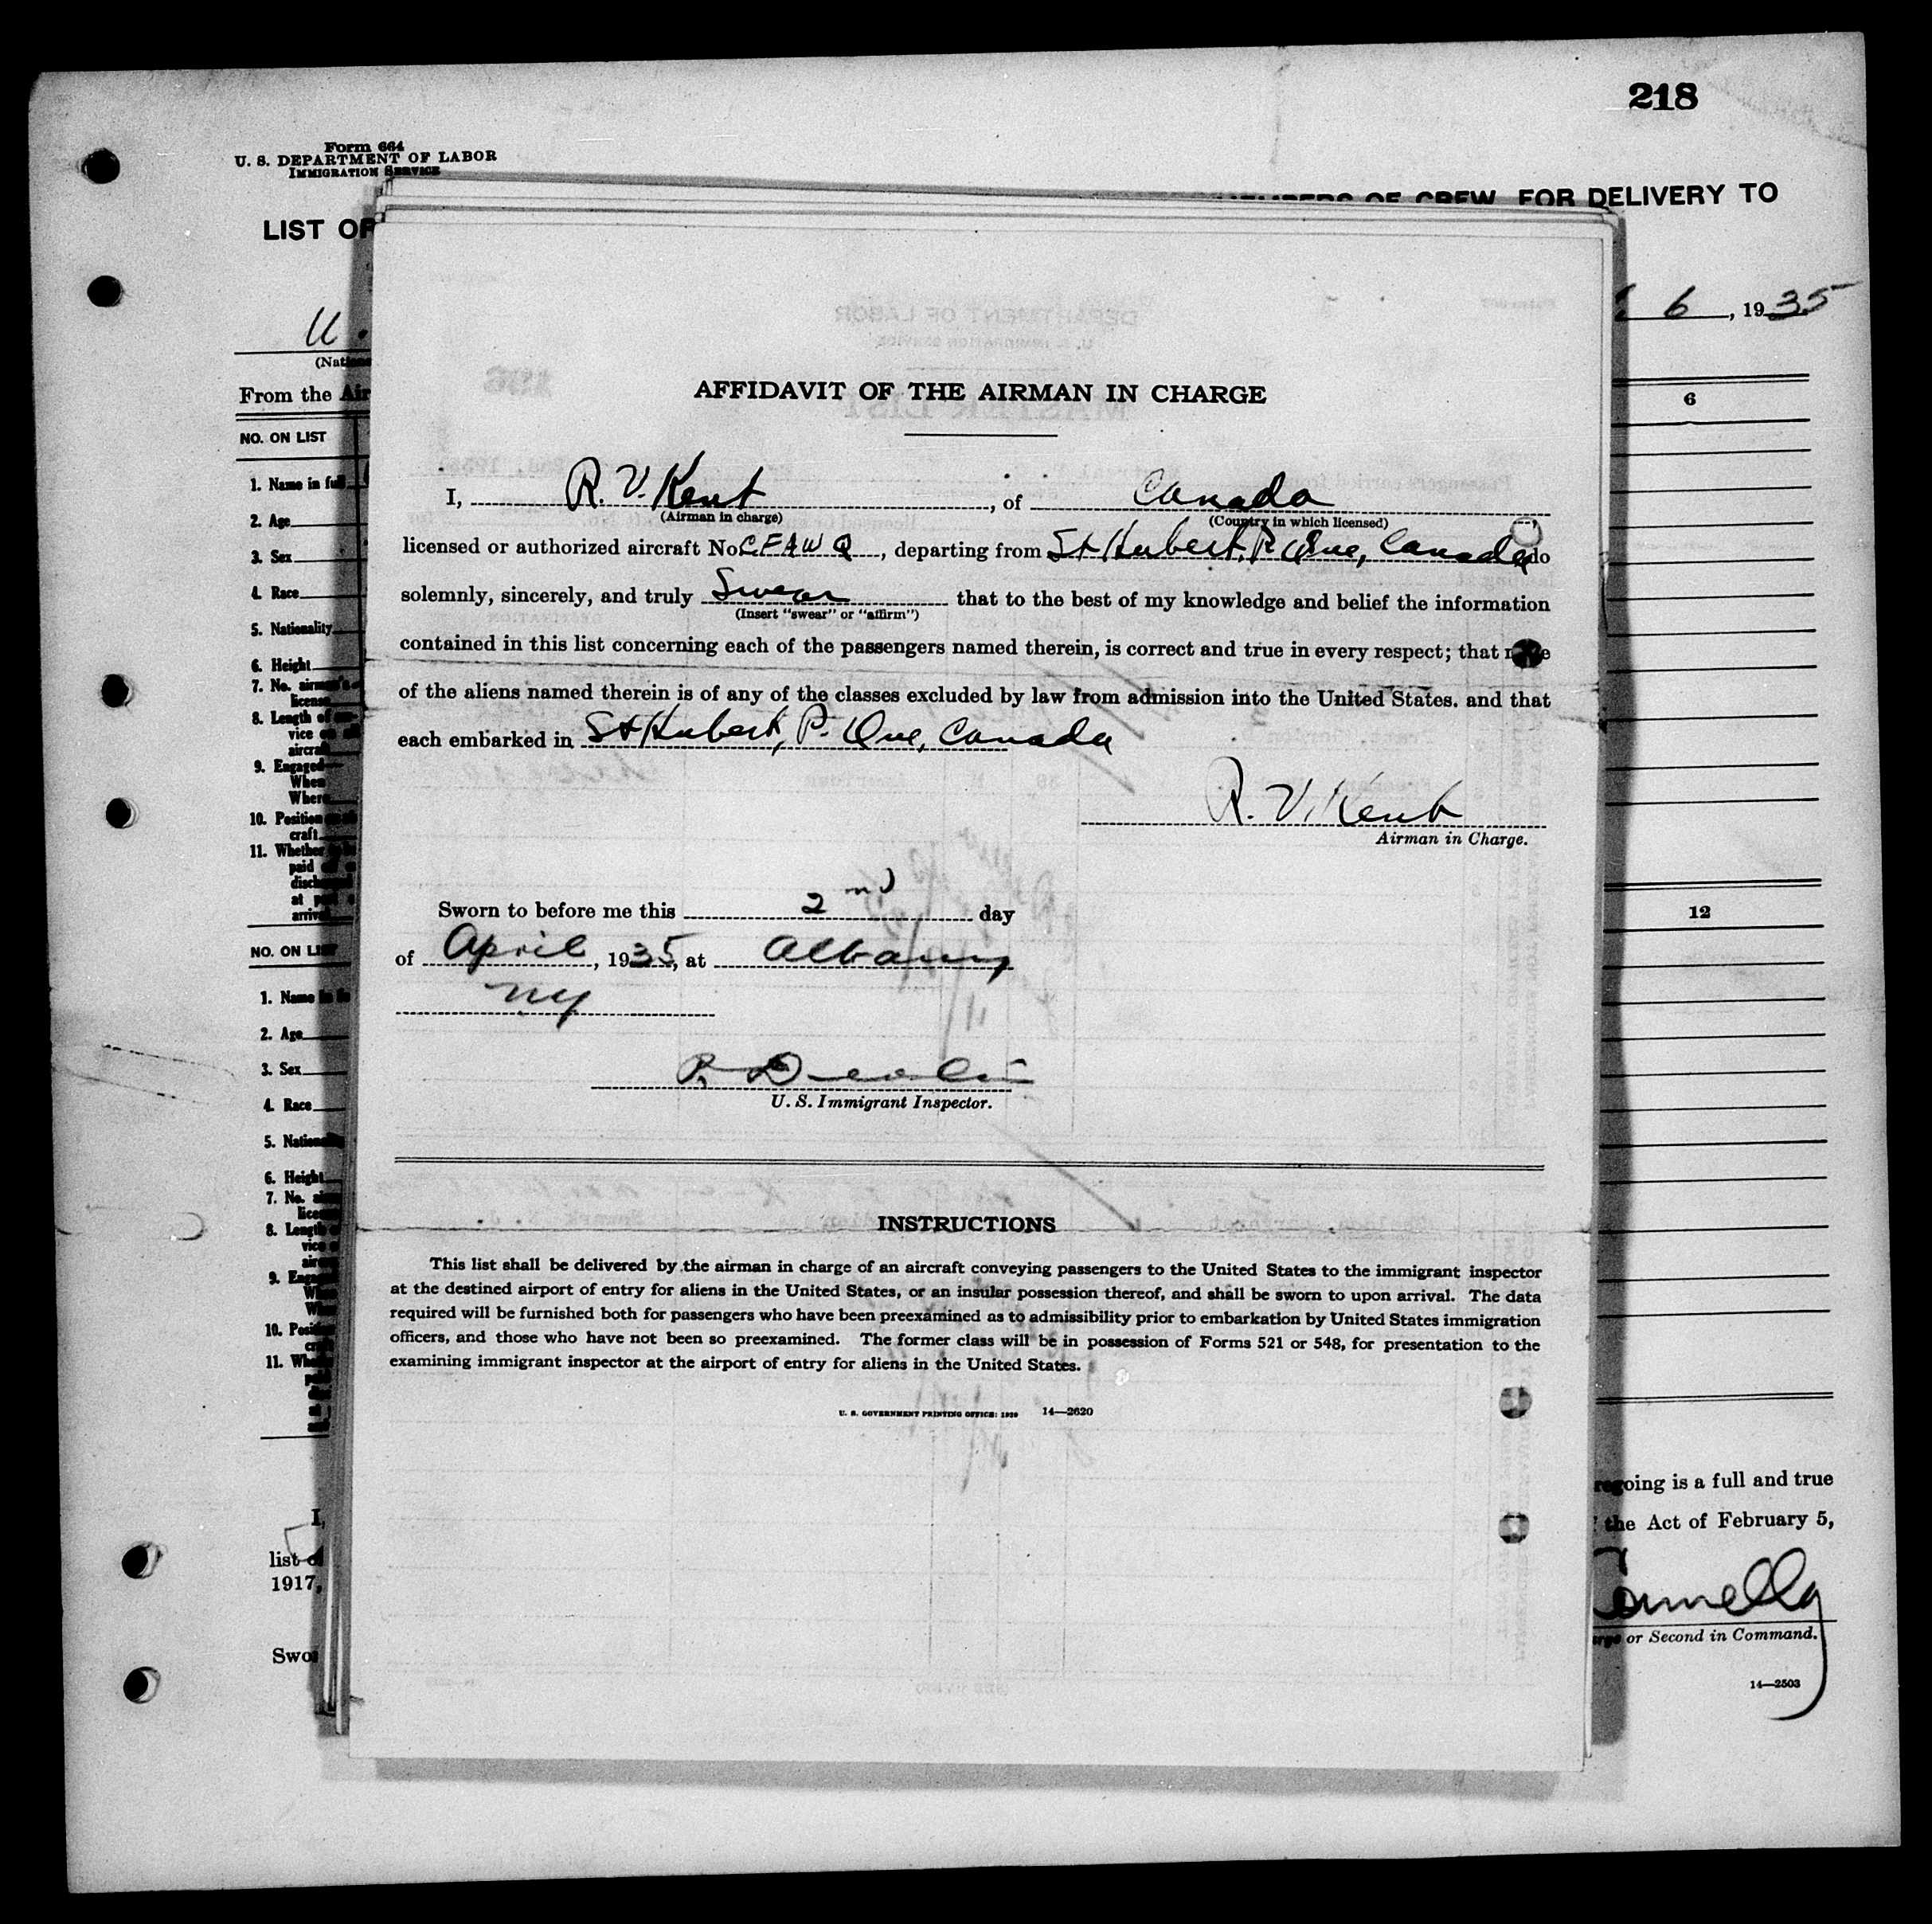 218
Form 664
U. S. DEPARTMENT OF LABOR
IMMIGRATION SERVICE
OF CREW, FOR DELIVERY TO
LIST OF
6, 1935
U.
From the Air
6
NO. ON LIST
1. Name in full
2. Age
3. Sex
4. Race
5. Nationality
6. Height
7. No. airman's
license
8. Length of
vice
aircraft
9. Engaged
When
Where
10. Position
craft
11. Whether
paid
at
12
NO. ON LIST
1. Name
2. Age
3. Sex
4. Race
5. Nation
6. Height
7. No.
8. Length
9.
10.
11.
AFFIDAVIT OF THE AIRMAN IN CHARGE
I, R. V. Kent, of Canada
(Airman in charge) (Country in which licensed)
licensed or authorized aircraft No CFAWQ, departing from St Hubert, P Que, Canada do
solemnly, sincerely, and truly Swear that to the best of my knowledge and belief the information
(Insert "swear" or "affirm")
contained in this list concerning each of the passengers named therein, is correct and true in every respect; that
of the aliens named therein is of any of the classes excluded by law from admission into the United States. and that
each embarked in St Hubert, P. Que, Canada
R. V. Kent
Airman in Charge.
Sworn to before me this 2nd day
of April, 1935, at Albany
NY
U. S. Immigrant Inspector.
INSTRUCTIONS
This list shall be delivered by the airman in charge of an aircraft conveying passengers to the United States to the immigrant inspector
at the destined airport of entry for aliens in the United States, or an insular possession thereof, and shall be sworn to upon arrival. The data
required will be furnished both for passengers who have been preexamined as to admissibility prior to embarkation by United States immigration
officers, and those who have not been so preexamined. The former class will be in possession of Forms 521 or 548, for presentation to the
examining immigrant inspector at the airport of entry for aliens in the United States.
U. S. GOVERNMENT PRINTING OFFICE: 1929 14—2620
going is a full and true
I,
the Act of February 5,
list
1917,
or Second in Command.
Swo
14—2503